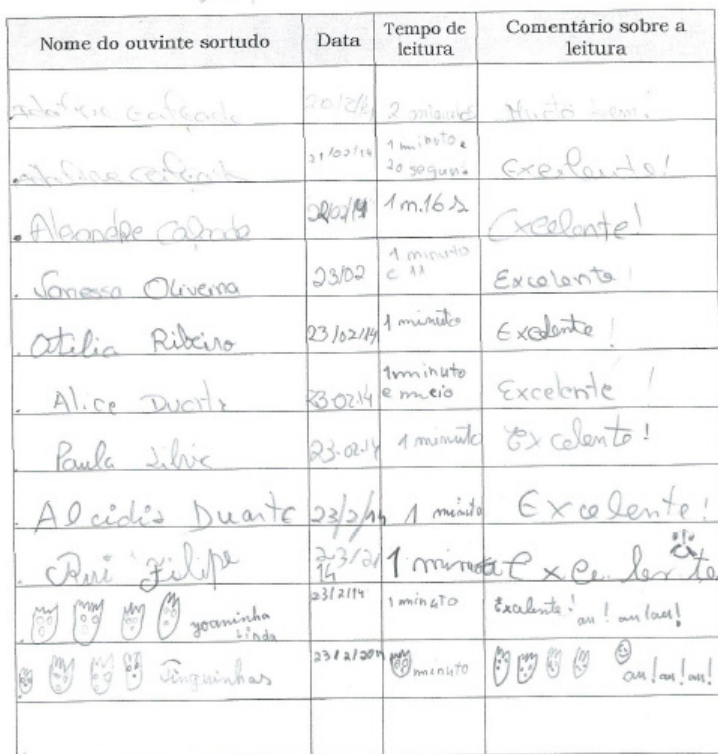 Nome do ouvinte sortudo Data Tempo de leitura Comentário sobre a leitura
2 minutos
21/02/14 1 minuto e 20 segun. Exelente!
Alexandre 1 m.16 s Excelente!
Vanessa Oliveira 23/02 1 minuto e 11 Excelente!
Otilia Ribeiro 23/02/14 1 minuto Excelente!
Alice Duarte 23-02.14 1 minuto e meio Excelente!
Paula Silvia 23-02-14 1 minuto Excelente!
Alcidia Duarte 23/2/14 1 minuto Excelente!
Rui Filipe 23/2/14 1 minuto Excelente
yoaninha Linda 23/2/14 1 minuto Excelente! au! au! au!
Pinguinhas 23/2/2014 minuto au! au! au!